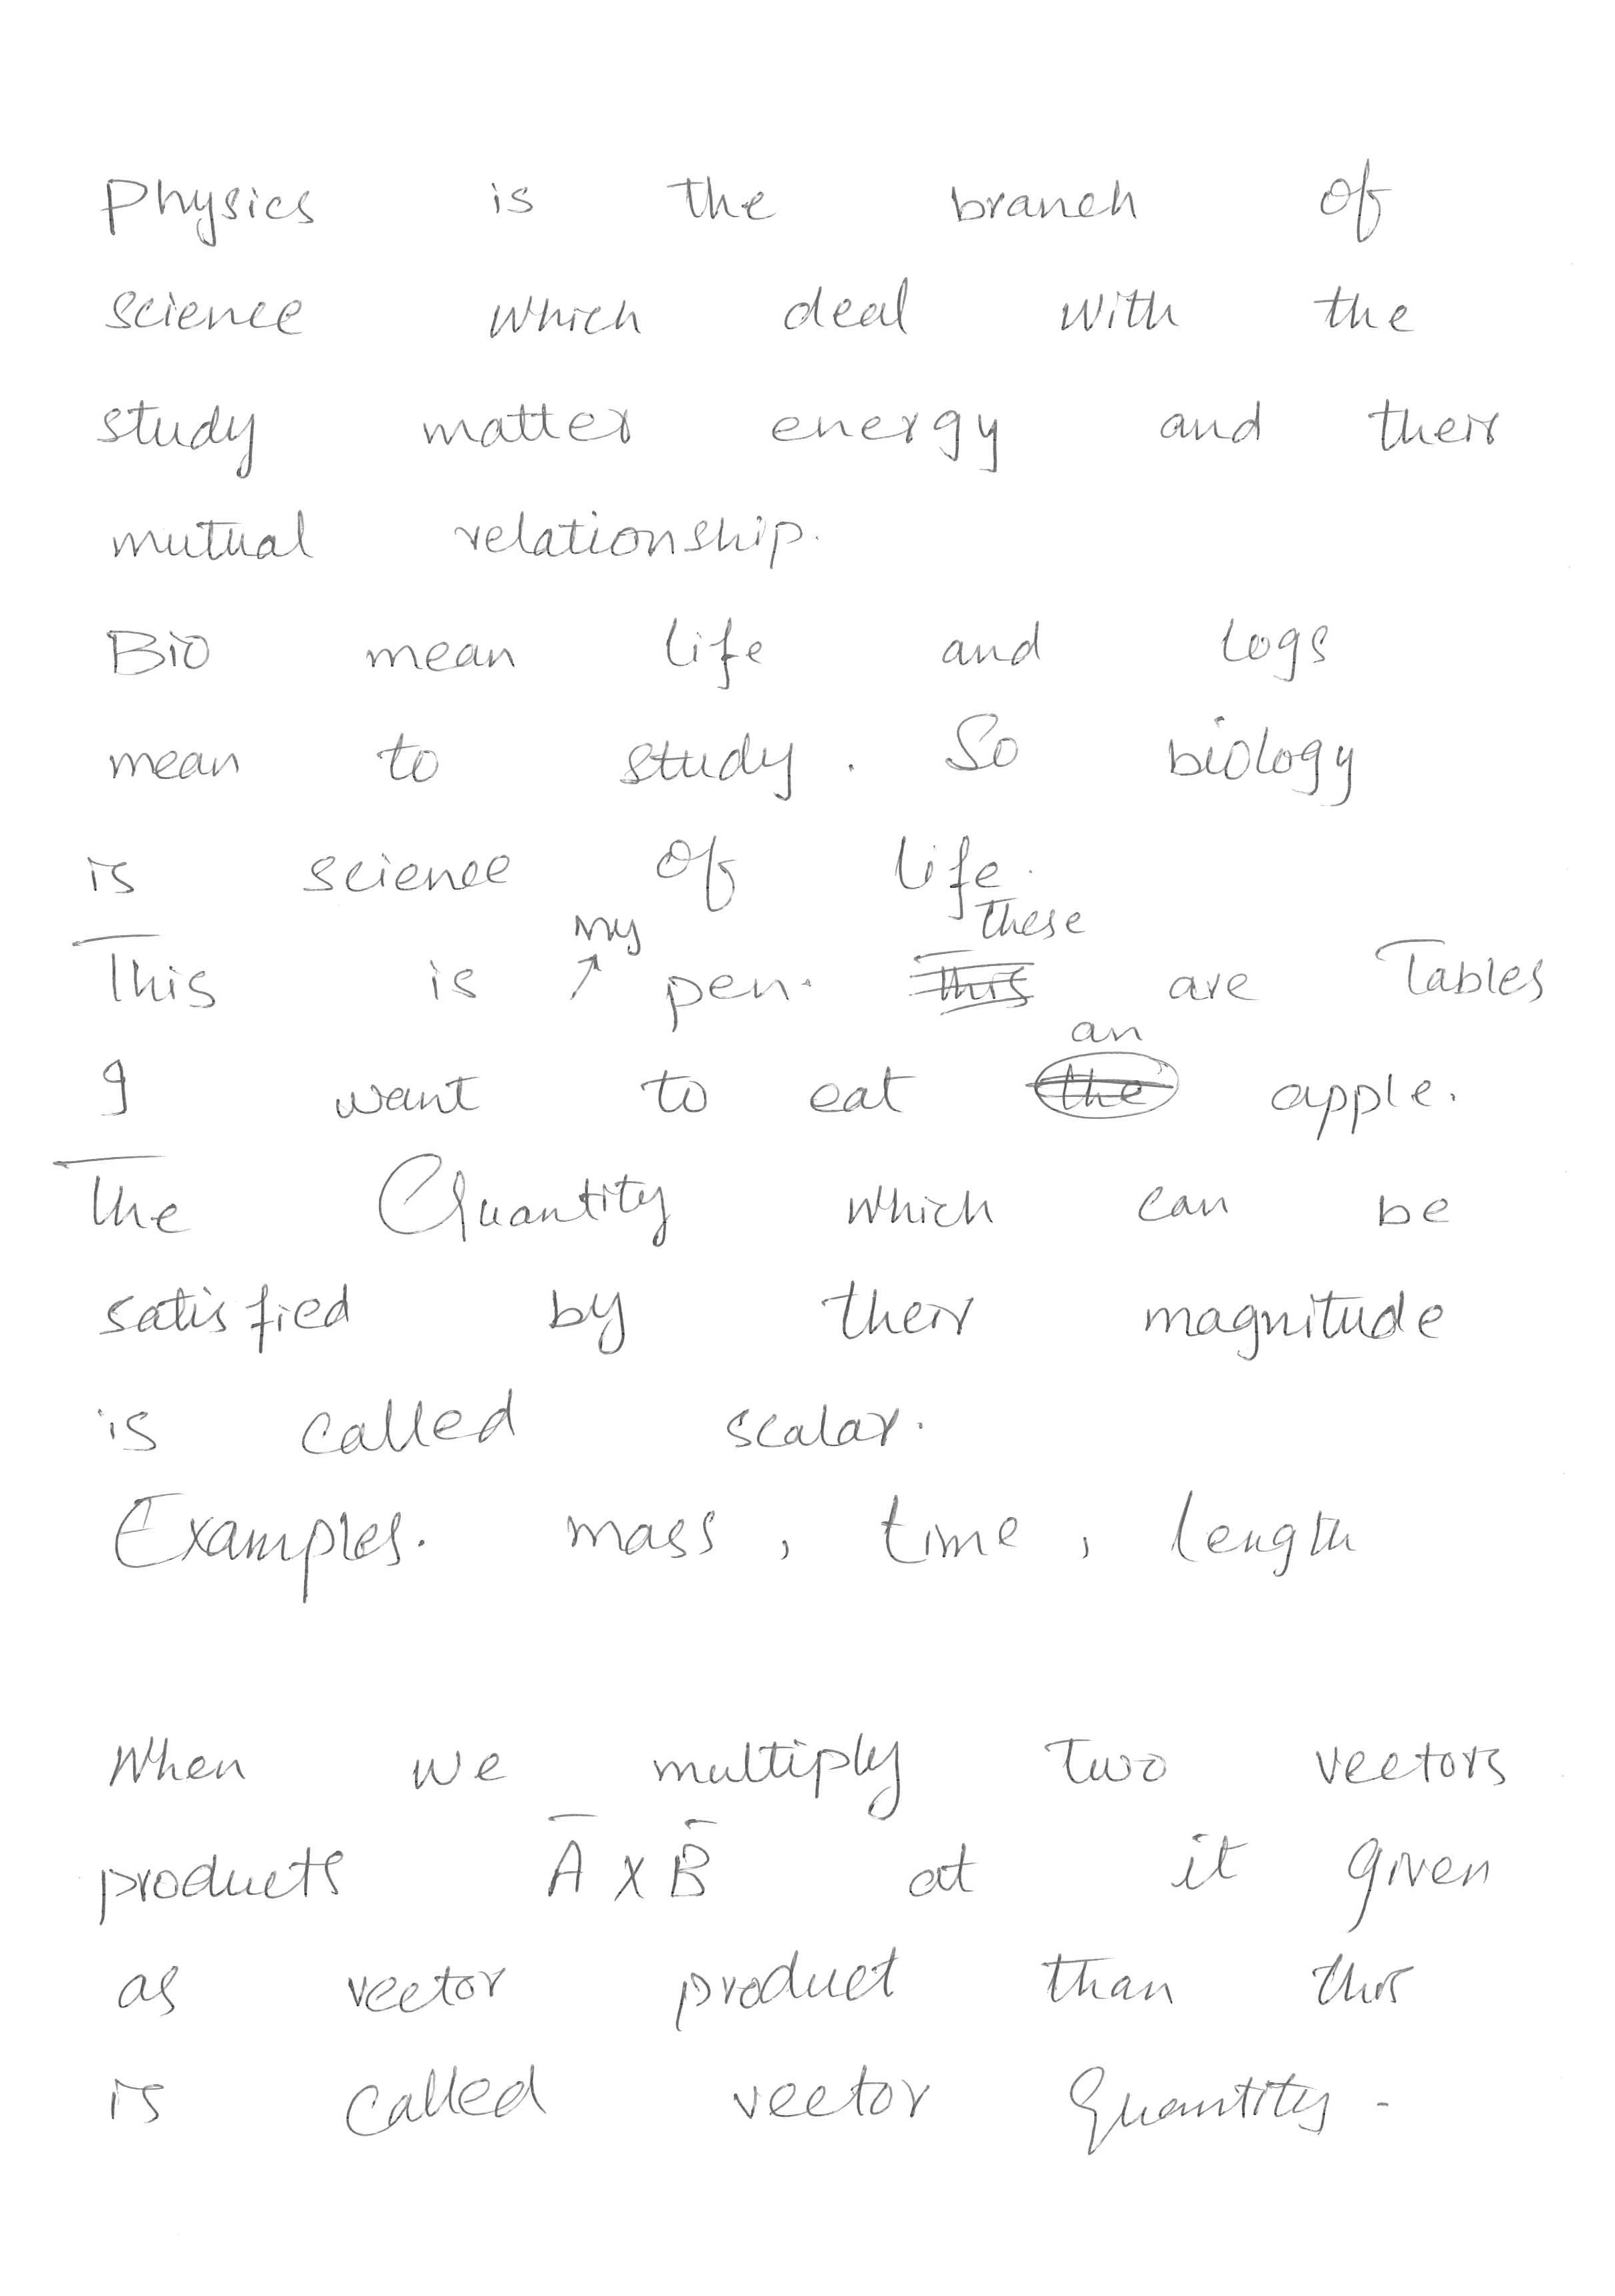 Physics is the branch of
science which deal with the
study matter energy and their
mutual relationship.
Bio mean life and logs
mean to study . So biology
is science of life.
This is my pen. these are Tables
I want to eat an apple.
The Quantity which can be
satisfied by their magnitude
is called scalar.
Examples. mass , time , length
When we multiply Two vectors
products A̅ x B̅ at it given
as vector product than this
is called vector Quantity -